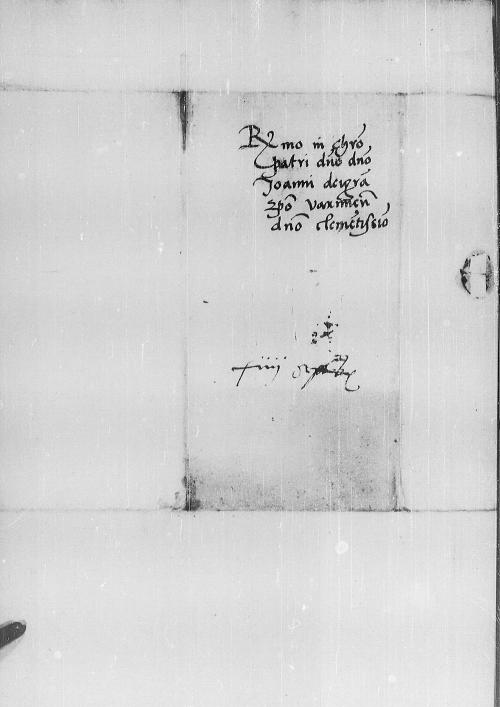 Rmo in chro
patri dno dno
Joanni dei gra
Epo varmien
dno clemetissio